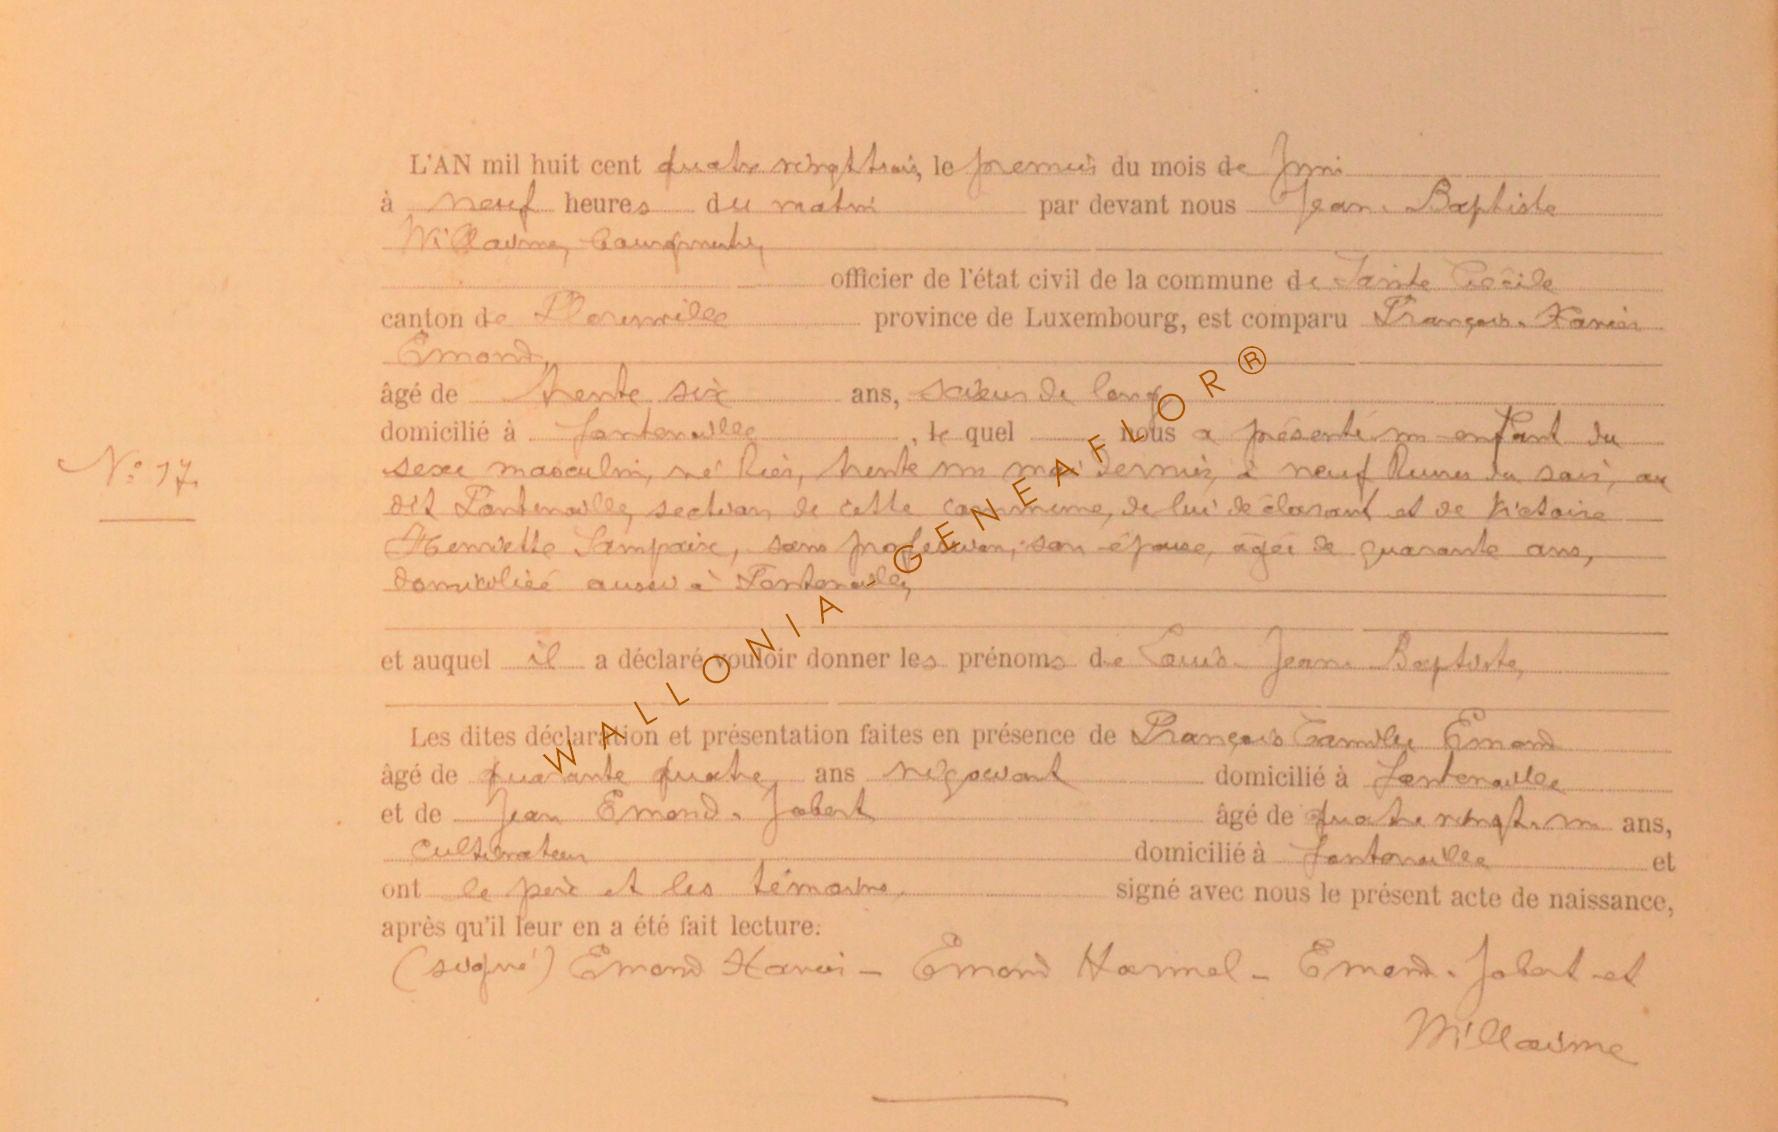 L'AN mil huit cent quatre vingt trois, le premier du mois de Juin
à neuf heures du matin par devant nous Jean-Baptiste
Willaime, Bourgmestre,
officier de l'état civil de la commune de Sainte Cécile
canton de Florenville province de Luxembourg, est comparu François-Xavier
Emond,
âgé de trente six ans, scieur de long,
domicilié à Fontenoille, le quel nous a présenté un enfant du
N° 17.
sexe masculin, né hier, trente un mai dernier, à neuf heures du soir, au
dit Fontenoille, section de cette commune, de lui déclarant et de Victoire
Henriette Lampaix, sans profession, son épouse, âgée de quarante ans,
domiciliée aussi à Fontenoille,
et auquel il a déclaré vouloir donner les prénoms de Louis-Jean-Baptiste,
Les dites déclaration et présentation faites en présence de François Camille Emond
âgé de quarante quatre ans négociant domicilié à Fontenoille
et de Jean Emond-Jobert âgé de quatre vingt-un ans,
cultivateur domicilié à Fontenoille et
ont le père et les témoins, signé avec nous le présent acte de naissance,
après qu'il leur en a été fait lecture.
(signé) Emond Xavier – Emond Harmel – Emond-Jobert et
Willaime
WALLONIA - GENEAFLOR®